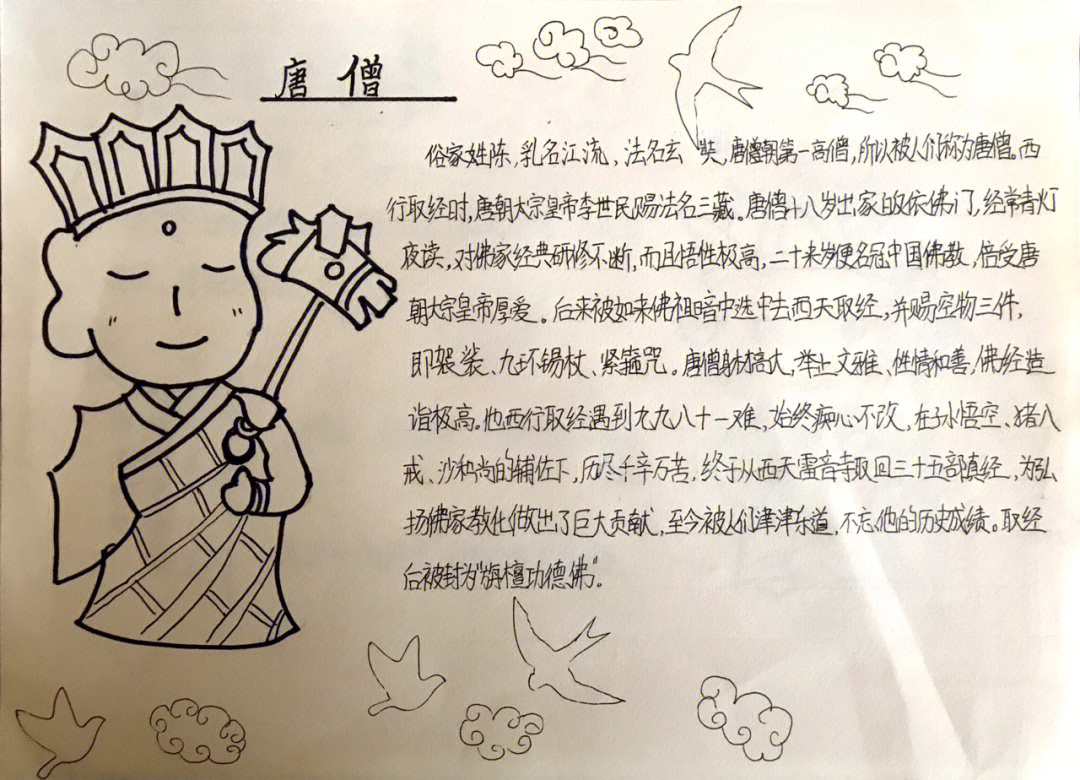 唐 僧
俗家姓陈,乳名江流,法名玄 奘,唐僧朝第一高僧,所以被人们称为唐僧。西
行取经时,唐朝大宗皇帝李世民赐法名三藏。唐僧十八岁出家皈依佛门,经常青灯
夜读,对佛家经典研修不断,而且悟性极高,二十来岁便名冠中国佛教,倍受唐
朝大宗皇帝厚爱。后来被如来佛祖暗中选中去西天取经,并赐宝物三件,
即袈裟、九环锡杖、紧箍咒。唐僧身材高大,举止文雅、性情和善,佛经造
诣极高。他西行取经遇到九九八十一难,始终痴心不改,在孙悟空、猪八
戒、沙和尚的辅佐下,历尽千辛万苦,终于从西天雷音寺取回三十五部真经,为弘
扬佛家教化做出了巨大贡献,至今被人们津津乐道,不忘他的历史成绩。取经
后被封为"旃檀功德佛"。